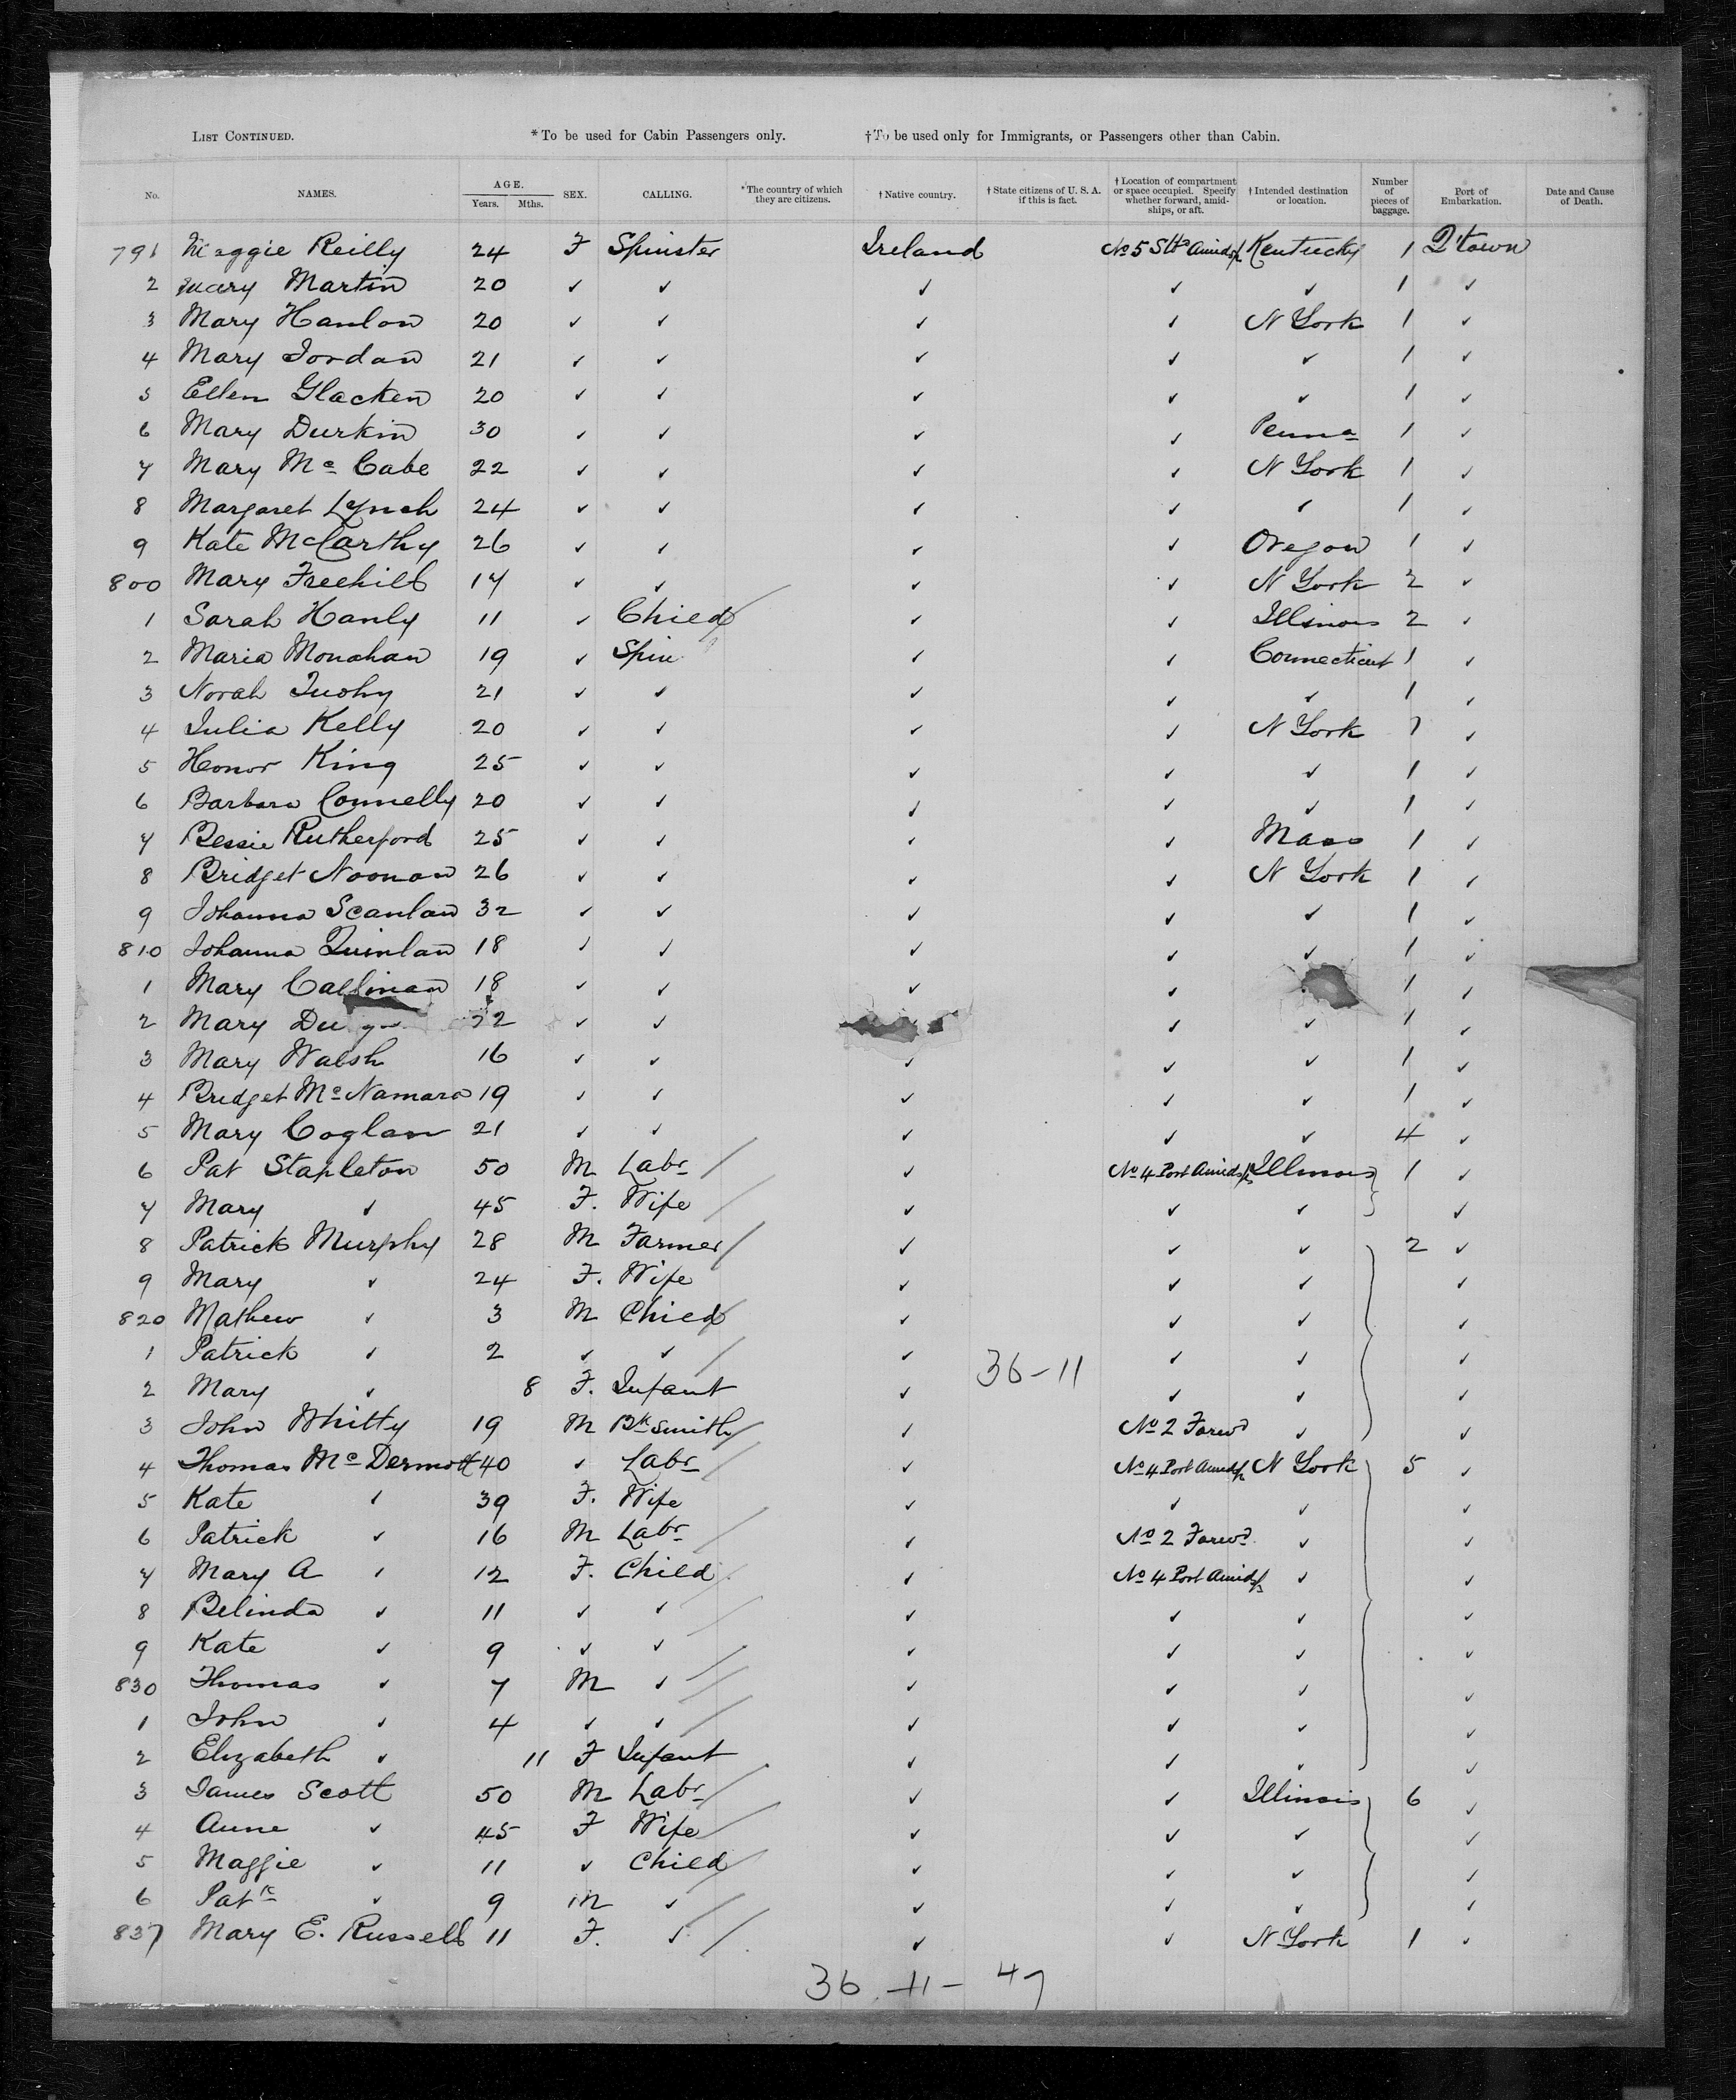 LIST CONTINUED. *To be used for Cabin Passengers only. †To be used only for Immigrants, or Passengers other than Cabin.
No. NAMES. AGE. Years. Mths. SEX. CALLING. *The country of which they are citizens. †Native country. †State citizens of U. S. A. if this is fact. †Location of compartment or space occupied. Specify whether forward, amid-ships, or aft. †Intended destination or location. Number of pieces of baggage. Port of Embarkation. Date and Cause of Death.
791 Maggie Reilly 24 F Spinster Ireland No 5 Amids Kentucky 1 Q'town
2 Mary Martin 20 ✓ ✓ ✓ ✓ ✓ 1 ✓
3 Mary Hanlon 20 ✓ ✓ ✓ ✓ N York 1 ✓
4 Mary Jordan 21 ✓ ✓ ✓ ✓ ✓ 1 ✓
5 Ellen Glacken 20 ✓ ✓ ✓ ✓ ✓ 1 ✓
6 Mary Durkin 30 ✓ ✓ ✓ ✓ Penna 1 ✓
7 Mary Mc Cabe 22 ✓ ✓ ✓ ✓ N York 1 ✓
8 Margaret Lynch 24 ✓ ✓ ✓ ✓ ✓ 1 ✓
9 Kate McCarthy 26 ✓ ✓ ✓ ✓ Oregon 1 ✓
800 Mary Freehill 17 ✓ ✓ ✓ ✓ N York 2 ✓
1 Sarah Hanly 11 ✓ Child ✓ ✓ Illinois 2 ✓
2 Maria Monahan 19 ✓ Spin ✓ ✓ Connecticut 1 ✓
3 Norah Tuohy 21 ✓ ✓ ✓ ✓ ✓ 1 ✓
4 Julia Kelly 20 ✓ ✓ ✓ ✓ N York 1 ✓
5 Honor King 25 ✓ ✓ ✓ ✓ ✓ 1 ✓
6 Barbara Connelly 20 ✓ ✓ ✓ ✓ ✓ 1 ✓
7 Bessie Rutherford 25 ✓ ✓ ✓ ✓ Mass 1 ✓
8 Bridget Noonan 26 ✓ ✓ ✓ ✓ N York 1 ✓
9 Johanna Scanlan 32 ✓ ✓ ✓ ✓ ✓ 1 ✓
810 Johanna Quinlan 18 ✓ ✓ ✓ ✓ ✓ 1 ✓
1 Mary Callinan 18 ✓ ✓ ✓ ✓ 1 ✓
2 Mary 22 ✓ ✓ ✓ ✓ 1 ✓
3 Mary Walsh 16 ✓ ✓ ✓ ✓ ✓ 1 ✓
4 Bridget McNamara 19 ✓ ✓ ✓ ✓ ✓ 1 ✓
5 Mary Coglan 21 ✓ ✓ ✓ ✓ ✓ 4 ✓
6 Pat Stapleton 50 M Labr ✓ No 4 Port Amids Illinois 1 ✓
7 Mary ✓ 45 F. Wife ✓ ✓ ✓ ✓
8 Patrick Murphy 28 M Farmer ✓ ✓ ✓ 2 ✓
9 Mary ✓ 24 F. Wife ✓ ✓ ✓ ✓
820 Mathew ✓ 3 M Child ✓ ✓ ✓ ✓
1 Patrick ✓ 2 ✓ ✓ ✓ 36-11 ✓ ✓ ✓
2 Mary ✓ 8 F. Infant ✓ ✓ ✓ ✓
3 John Whitty 19 M Bk Smith ✓ No 2 Forwd ✓ ✓
4 Thomas McDermott 40 ✓ Labr ✓ No 4 Port Amids N York 5 ✓
5 Kate ✓ 39 F. Wife ✓ ✓ ✓ ✓
6 Patrick ✓ 16 M Labr ✓ No 2 Forwd ✓ ✓
7 Mary A ✓ 12 F. Child ✓ No 4 Port Amids ✓ ✓
8 Belinda ✓ 11 ✓ ✓ ✓ ✓ ✓ ✓
9 Kate ✓ 9 ✓ ✓ ✓ ✓ ✓ ✓
830 Thomas ✓ 7 M ✓ ✓ ✓ ✓ ✓
1 John ✓ 4 ✓ ✓ ✓ ✓ ✓ ✓
2 Elizabeth ✓ 11 F Infant ✓ ✓ ✓ ✓
3 James Scott 50 M Labr ✓ ✓ Illinois 6 ✓
4 Anne ✓ 45 F Wife ✓ ✓ ✓ ✓
5 Maggie ✓ 11 ✓ Child ✓ ✓ ✓ ✓
6 Patk ✓ 9 M ✓ ✓ ✓ ✓ ✓
837 Mary E. Russell 11 F. ✓ ✓ ✓ N York 1 ✓
36-11-47